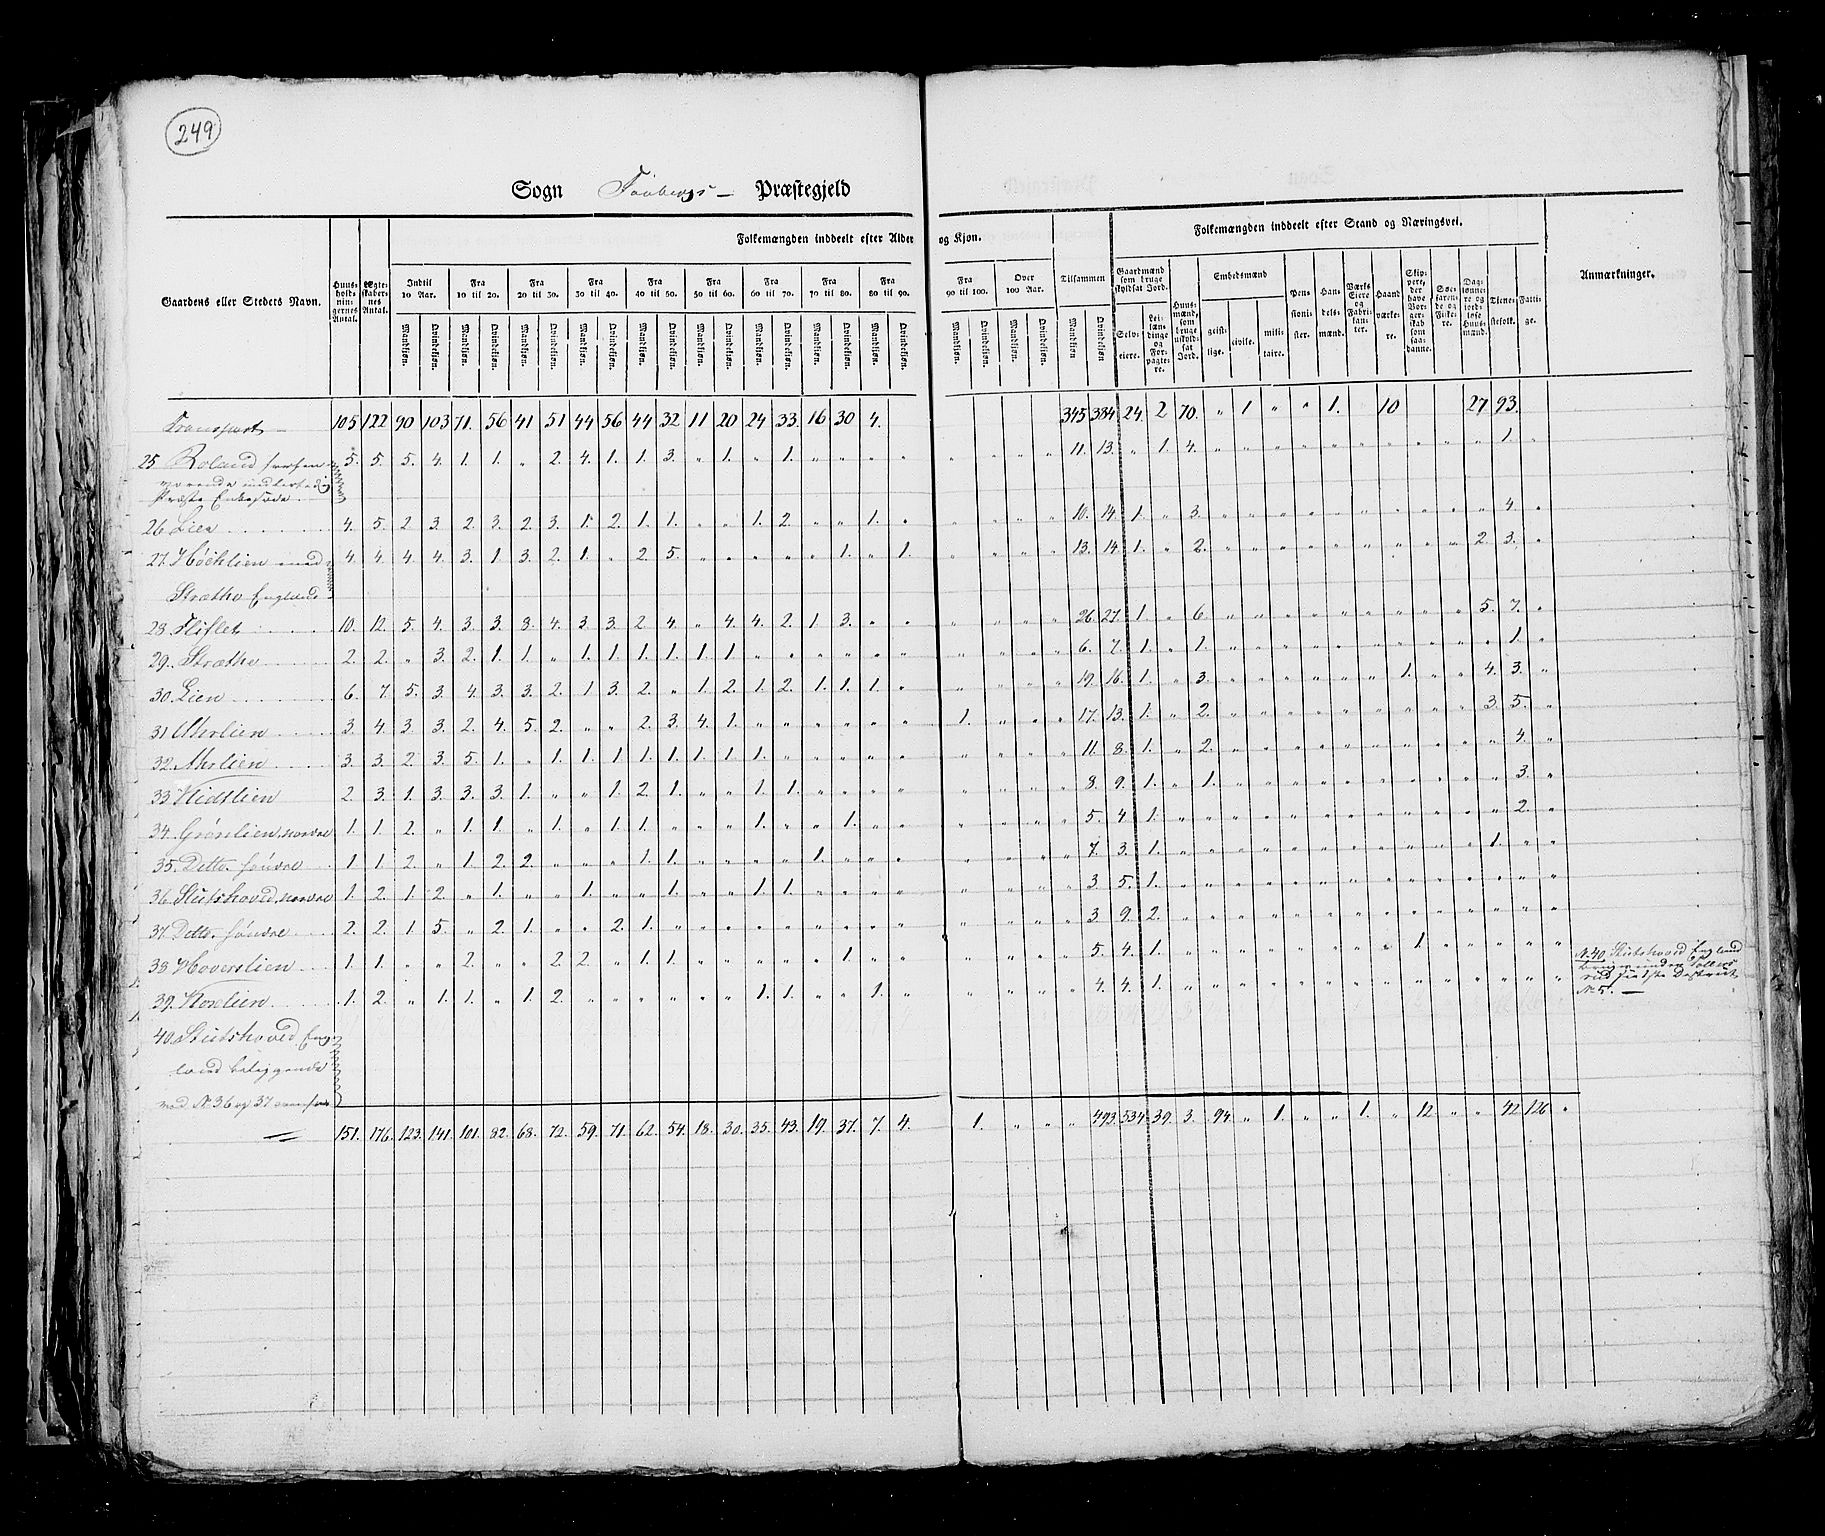 249
Sogn Faabergs – Præstegjeld
Folkemængden inddeelt efter Alder og Kjøn.
Folkemængden inddeelt efter Stand og Næringsvei.
Gaardens eller Stedets Navn.
Huusholdningernes Antal.
Ægteskabernes Antal.
Indtil 10 Aar. Fra 10 til 20. Fra 20 til 30. Fra 30 til 40. Fra 40 til 50. Fra 50 til 60. Fra 60 til 70. Fra 70 til 80. Fra 80 til 90. Fra 90 til 100. Over 100 Aar. Tilsammen
Mandkjøn. Qvindekjøn. Mandkjøn. Qvindekjøn. Mandkjøn. Qvindekjøn. Mandkjøn. Qvindekjøn. Mandkjøn. Qvindekjøn. Mandkjøn. Qvindekjøn. Mandkjøn. Qvindekjøn. Mandkjøn. Qvindekjøn. Mandkjøn. Qvindekjøn. Mandkjøn. Qvindekjøn. Mandkjøn. Qvindekjøn. Mandkjøn Qvindekjøn
Gaardmænd som bruge skyldsat Jord.
Selveiere.
Leilændinge og Forpagtere.
Huusmænd, som bruge uskyldsat Jord.
Embedsmænd
geistlige. civile. militaire.
Pensionister.
Handelsmænd.
Værks Eiere og Fabrikanter.
Haandværkere.
Skippere, der have Borgerskab som saadanne.
Søefarende og Fiskere.
Daglønnere og jordløse Huusmænd.
Tienestefolk.
Fattige.
Anmærkninger.
Transport – 105 122 90 103 71. 56 41 51 44 56 44 32 11 20 24 33. 16 30 4. 345 384 24. 2 70. „ 1 „ „ 1. 10 27 93.
25 Roland 5. 5. 5. 4. 1. 1. „ 2. 4. 1. 1. 3. „ 1. „ 1. „ „ „ „ „ „ „ „ 11. 13. „ 1. 4. „ „ „ „ „ „ „ „ „ „ 1. „
Præste Enkesæde.
26 Lien 4. 5. 2 3. 2. 3. 2. 3. 1. 2. 1. 1. „ „ 1. 2. „ „ 1. „ „ „ „ „ 10. 14 1. „ 3. „ „ „ „ „ „ „ „ „ „ 4. „
27. Høchlien med 4. 4. 4. 4. 3. 1. 3. 2. 1. „ 2. 5. „ „ „ „ „ 1. „ 1. „ „ „ „ 13. 14. 1. „ 2. „ „ „ „ „ „ „ „ „ 2. 3. „
Stræthe Engeland
28 Fliflet 10. 12. 5. 4. 3. 3. 8. 4. 3. 3. 2. 4. „ 4. 4. 2. 1. 3. „ „ „ „ „ „ 26. 27. 1. „ 6. „ „ „ „ „ „ „ „ „ 5. 7. „
29. Stræthe 2. 2. „ 3. 2. 1. 1. „ 1. 1. 1. 1. 1. 1. „ „ „ „ „ „ „ „ „ „ 6. 7. 1. „ 1. „ „ „ „ „ „ „ „ „ „ 1. „
30. Lien 6. 7. 5. 3. 4. 3. 3. 2. 1. 3. 2. „ 1. 2. 1. 2. 1. 1. 1. „ „ „ „ „ 19. 16. 1. „ 3. „ „ „ „ „ „ 1. „ „ 4. 3. „
31 Ahrlien 3. 4. 3 3. 2. 4. 5. 2. „ „ 2. 3. 4. 1. „ „ „ „ „ „ 1. „ „ „ 17. 13. 1. „ 2. „ „ „ „ „ „ „ „ „ 3. 5. „
32. Ahrlien 3. 3. 2. 3. 5. 1. „ 1. 1. 1. 1. 1. 1. 1. „ „ „ „ „ „ „ „ „ „ 11. 8. 1. „ 2. „ „ „ „ „ „ „ „ „ „ 4. „
33. Hidslien 2. 3. 1. 3. 3. 3. 1. „ „ 1. 2. 1. „ „ 1. 1. „ „ „ „ „ „ „ „ 8. 9. 1. „ 1. „ „ „ „ „ „ „ „ „ „ 3. „
34. Grønlien, nordre 1. 1. 2. „ 1. 1. „ 1. „ 1. 1. „ „ „ 1. „ „ 1. „ „ „ „ „ „ 5. 4. 1. „ „ „ „ „ „ „ „ „ „ „ „ 2. „
35. Detto. søndre 1. 1. 2. „ 1. 2. 2. „ „ „ 1. 1. „ „ „ „ 1. „ „ „ „ „ „ „ 7. 3. 1. „ „ „ „ „ „ „ „ „ „ „ „ 1. „
36. Stutshoved, nordre 1. 2. 1. 2. „ 1. „ „ 1. „ „ 1. „ „ 1. 1. „ „ „ „ „ „ „ „ 3 5. 1. „ „ „ „ „ „ „ „ „ „ „ „ „ „
37. Detto. søndre 2. 2. 1 5. „ 2. 1. „ „ 2. 1. „ „ „ „ „ „ „ „ „ „ „ „ „ 3 9. 2. „ „ „ „ „ „ „ „ „ „ „ „ „ „
38 Hoverslien 1. 1. „ „ 2. „ „ 2. 2. „ 1. 1. „ „ „ „ „ 1. „ „ „ „ „ „ 5. 4. 1. „ „ „ „ „ „ „ „ 1. „ „ „ „ „
39. Roselien 1. 2. „ 1. 1. „ 1. 2. „ „ „ „ „ „ 1. 1. „ „ 1. „ „ „ „ „ 4. 4. 1. „ „ „ „ „ „ „ „ „ „ „ „ „ „
N. 40. Stutshoved England
N 5. –
40. Stutshoved Engeland beliggende
ved N. 36 og 37
151. 176. 123. 141. 101. 82. 68. 72. 59. 71. 62. 54. 18. 30. 35. 43. 19. 37. 7. 4. 1. „ „ „ 493. 534. 39. 3. 94. „ 1. „ „ 1. „ 12 „ „ 42 126 „